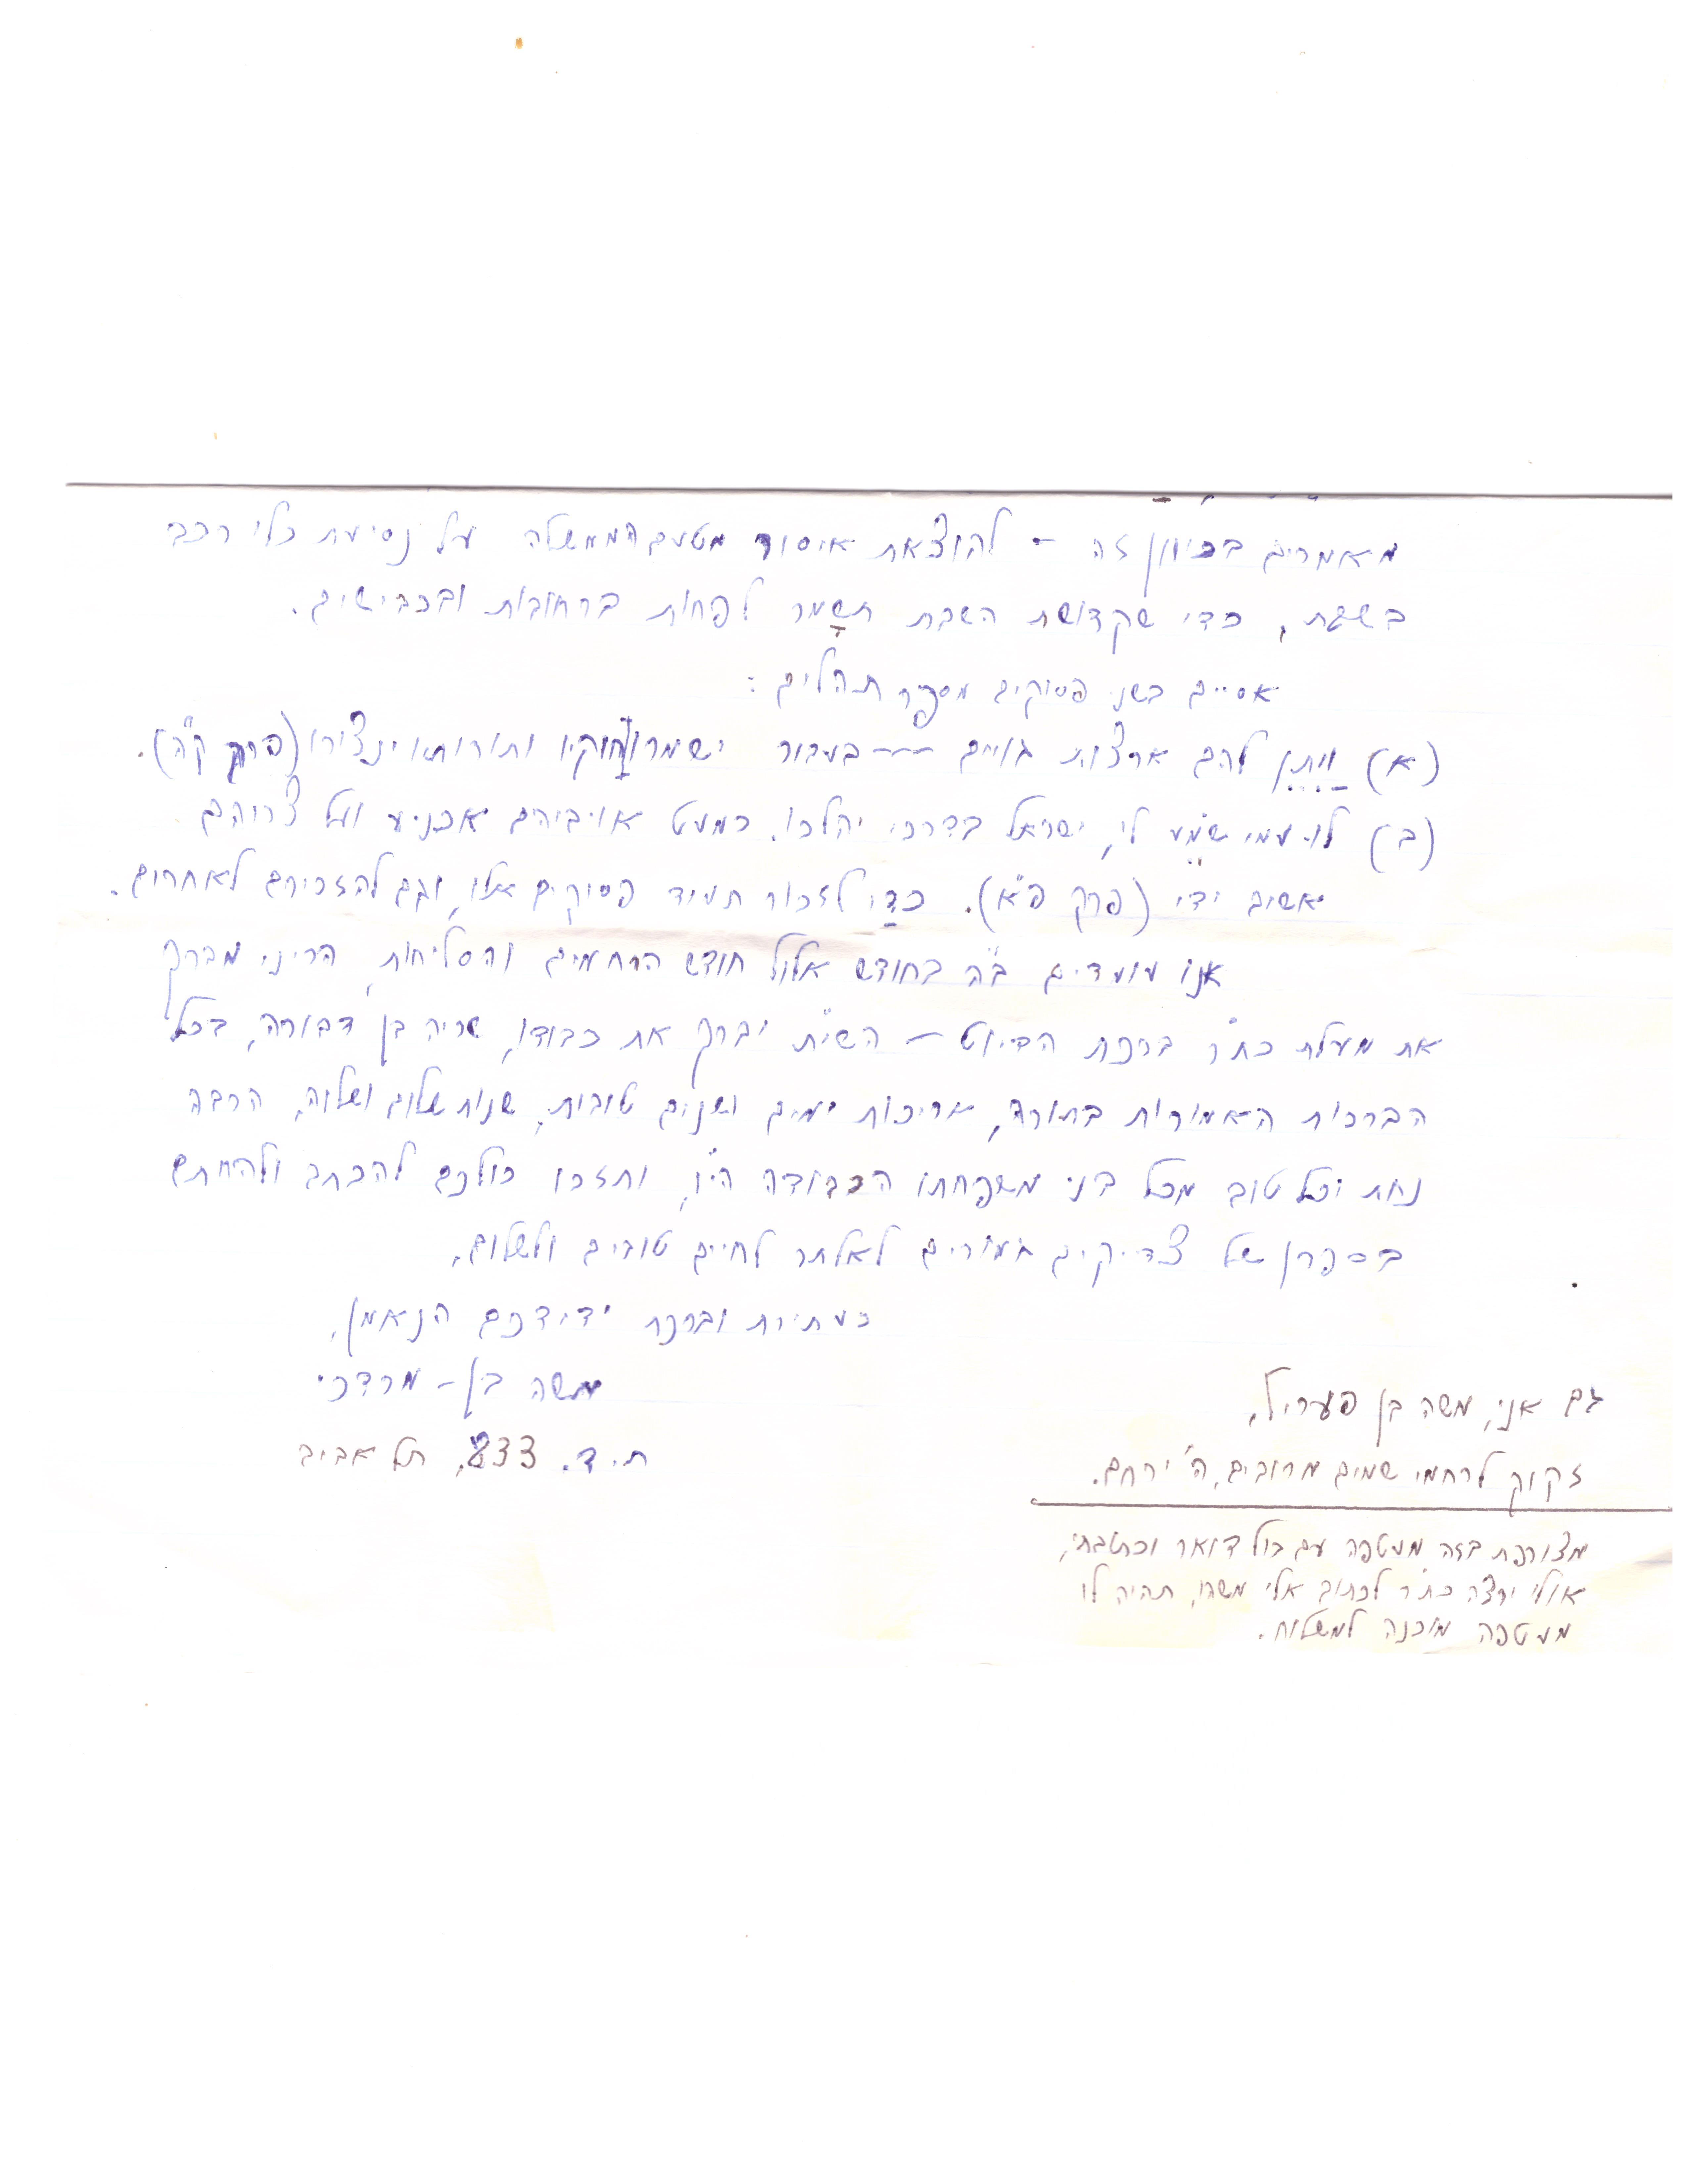 מאמרים בכיוון זה – להוצאת איסור מטעם הממשלה על נסיעת כלי רכב
בשבת, כדי שקדושת השבת תשָמר לפחות ברחובות ובכבישים.
אסיים בשני פסוקים מספר תהלים:
(א) וַיִתֵן להם ארצות גויים --- בעבור ישמרו חוקיו ותורותיו ינצורו (פרק ק"ה).
(ב) לו עמי שֹמֵע לי, ישראל בדרכי יהלכו. כמעט אויביהם אכניע ועל צריהם
אשיב ידי (פרק פ"א). כדַי לזכור תמיד פסוקים אלו, וגם להזכירם לאחרים.
אנו עומדים ב"ה בחודש אלול חודש הרחמים והסליחות, הריני מברך
את מעלת כת"ר ברכת הדיוט – השי"ת יברך את כבודו, שריה בן דבורה, בכל
הברכות האמורות בתורה, אריכות ימים ושנים טובות, שנות שלום ושלוה, הרבה
נחת וכל טוב מכל בני משפחתו הכבודה הי"ו, ותזכו כולכם להכתב ולהחתם
בספרן של צדיקים גמורים לאלתר לחיים טובים ולשלום.
בעתירת וברכת ידידכם הנאמן,
משה בן-מרדכי
ת.ד. 833, תל אביב
גם אני, משה בן פעריל,
זקוק לרחמי שמים מרובים, ה' ירחם.
מצורפת בזה מעטפה עם בול דואר וכתובתי,
אולי ירצה כת"ר לכתוב אלי משהו, תהיה לו
מעטפה מוכנה למשלוח.